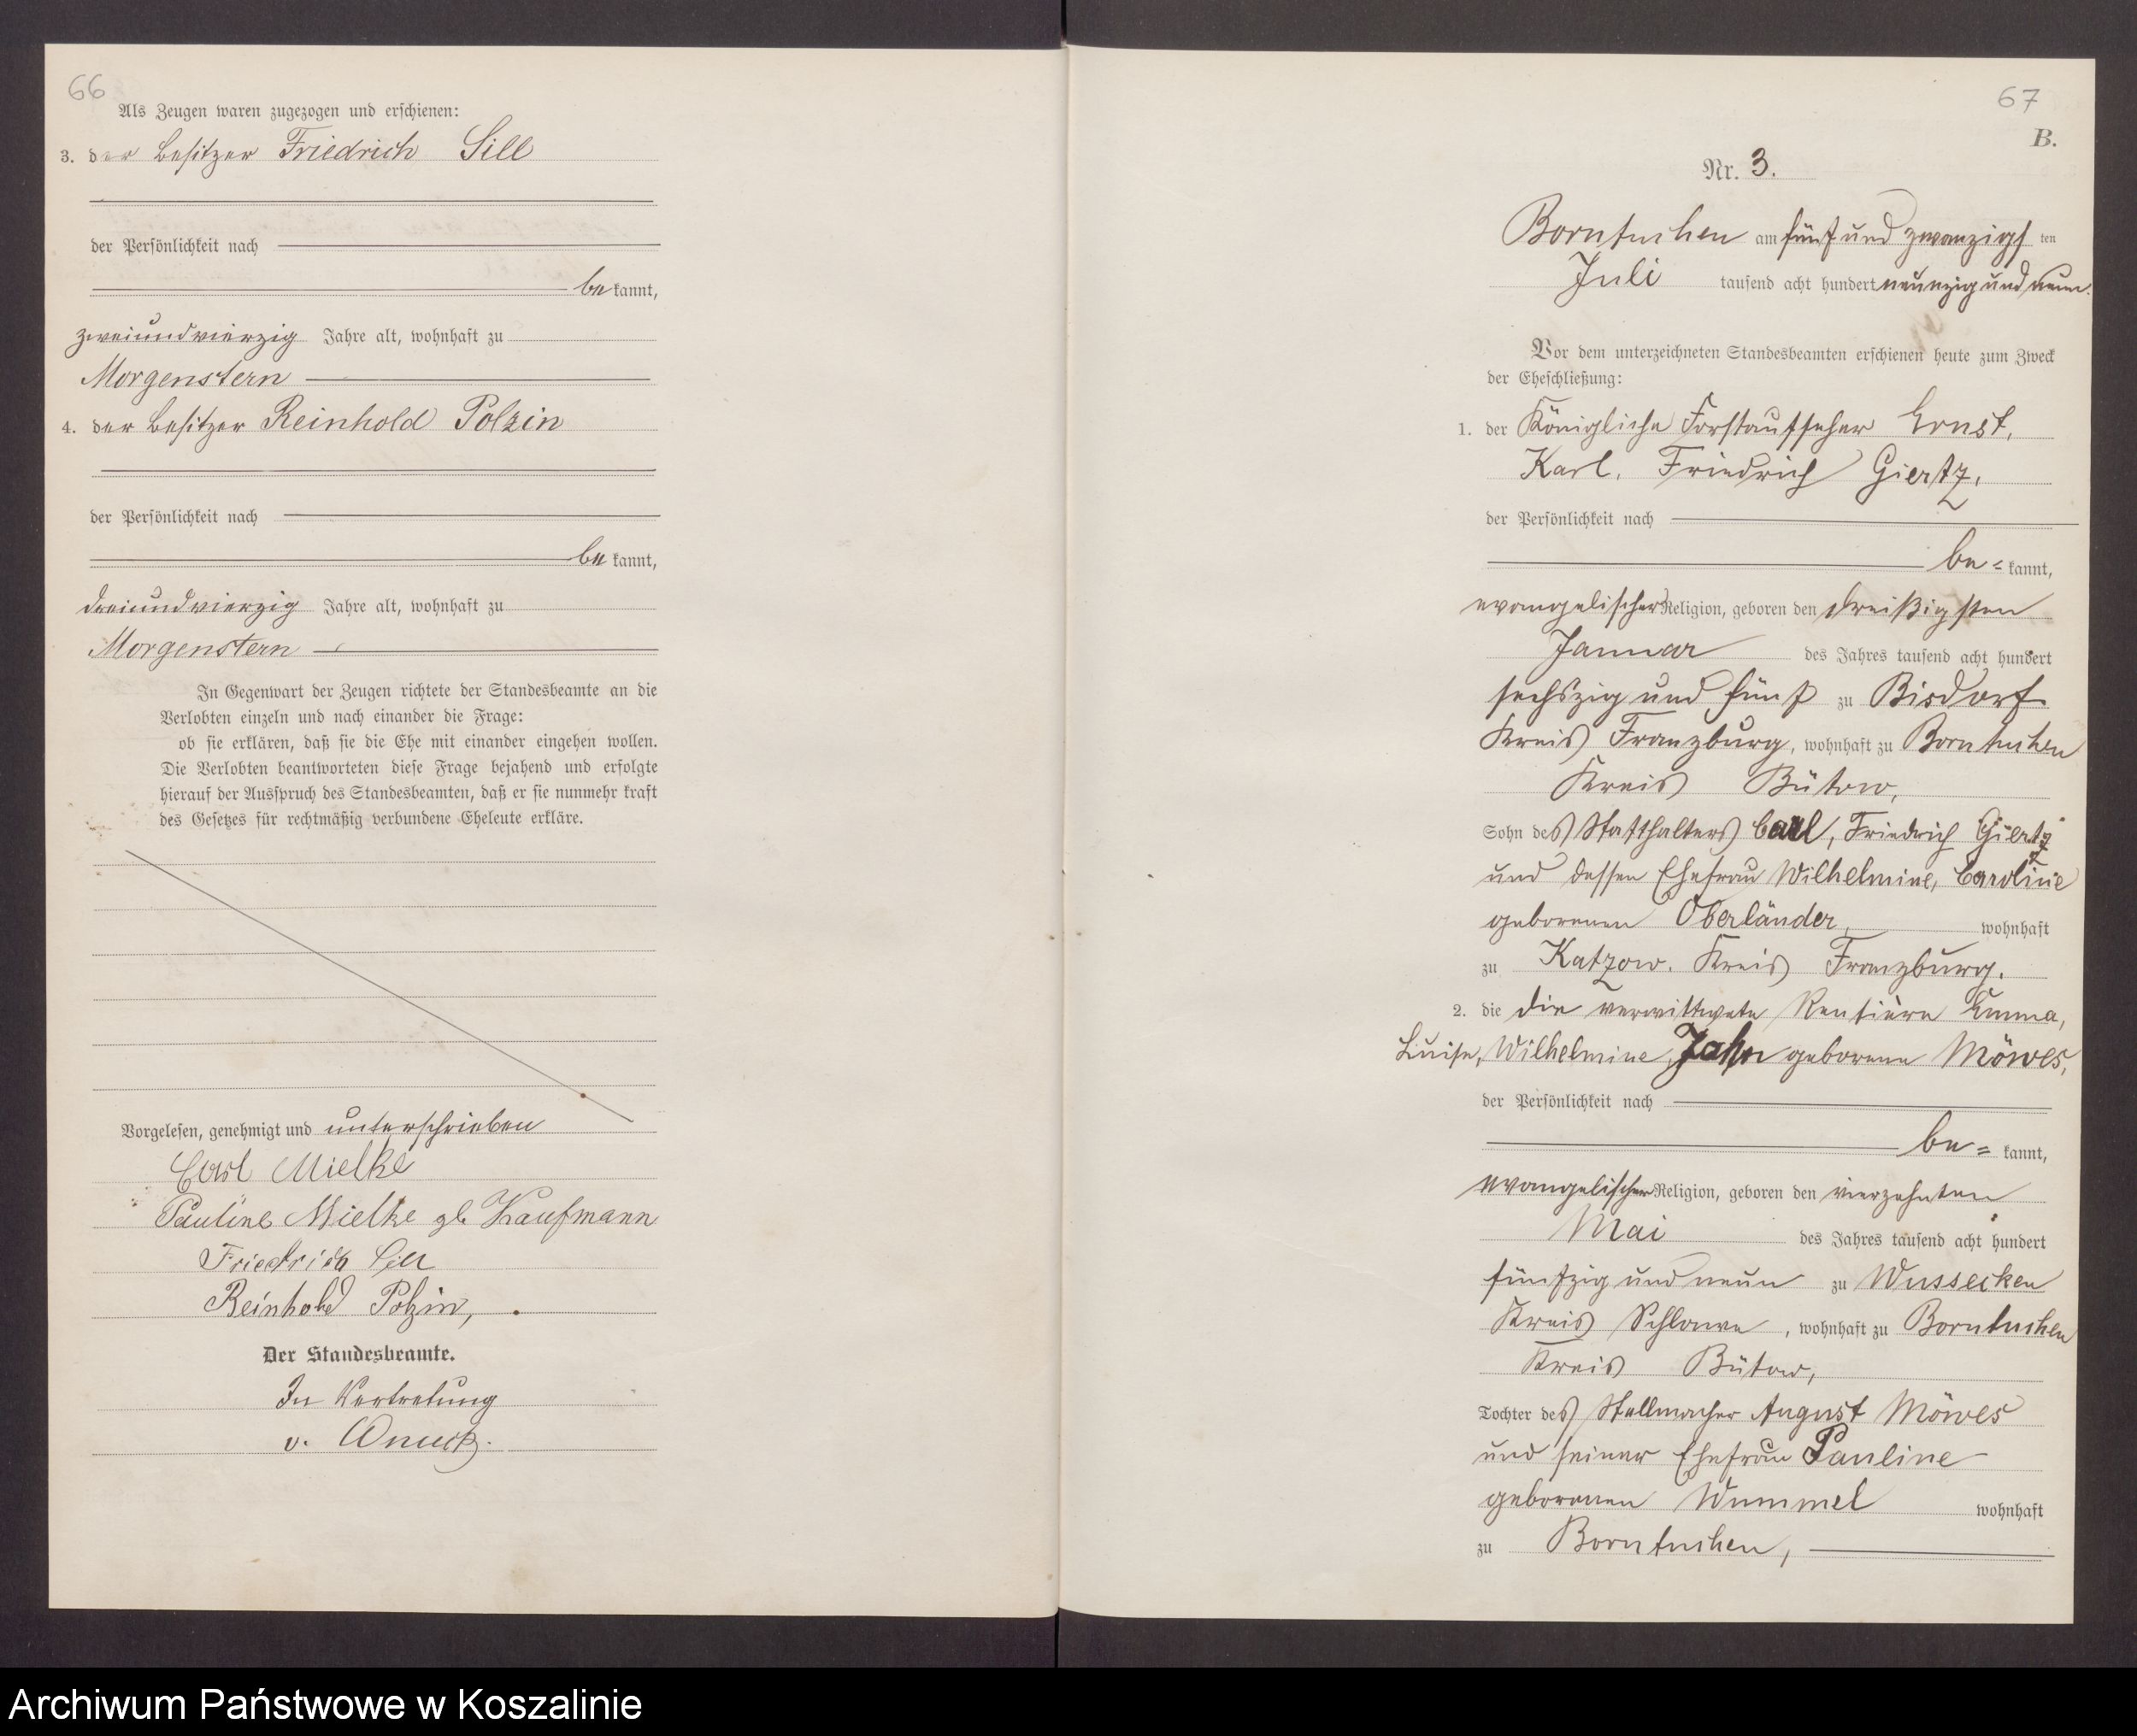 66
Als Zeugen waren zugezogen und erschienen:
3. der Besitzer Friedrich Sill
der Persönlichkeit nach
bekannt,
zweiundvierzig Jahre alt, wohnhaft zu
Morgenstern
4. der Besitzer Reinhold Polzin
der Persönlichkeit nach
bekannt,
dreiundvierzig Jahre alt, wohnhaft zu
Morgenstern
In Gegenwart der Zeugen richtete der Standesbeamte an die
Verlobten einzeln und nach einander die Frage:
ob sie erklären, daß sie die Ehe mit einander eingehen wollen.
Die Verlobten beantworteten diese Frage bejahend und erfolgte
hierauf der Ausspruch des Standesbeamten, daß er sie nunmehr kraft
des Gesetzes für rechtmäßig verbundene Eheleute erkläre.
Vorgelesen, genehmigt und unterschrieben
Carl Mielke
Pauline Mielke gb. Kaufmann
Friedrich Sill
Reinhold Polzin,
Der Standesbeamte.
In Vertretung
v.
67
B.
Nr. 3.
Borntuchen am fünf und zwanzigsten
Juli tausend acht hundert neunzig und neun.
Vor dem unterzeichneten Standesbeamten erschienen heute zum Zweck
der Eheschließung:
1. der Königliche Forstaufseher Ernst,
Karl, Friedrich Giertz,
der Persönlichkeit nach
be=kannt,
evangelischer Religion, geboren den dreißigsten
Januar des Jahres tausend acht hundert
sechszig und fünf zu Bisdorf
Kreis Franzburg, wohnhaft zu Borntuchen
Kreis Bütow,
Sohn des Statthalters Carl, Friedrich Giertz
und dessen Ehefrau Wilhelmine, Caroline
geborenen Oberländer, wohnhaft
zu Katzow, Kreis Franzburg.
2. die die verwittwete Rentière Emma,
Luise, Wilhelmine, Jahn geborene Möwes,
der Persönlichkeit nach
be=kannt,
evangelischer Religion, geboren den vierzehnten
Mai des Jahres tausend acht hundert
fünfzig und neun zu Wussecken
Kreis Schlawe, wohnhaft zu Borntuchen
Kreis Bütow,
Tochter des Stellmacher August Möwes
und seiner Ehefrau Pauline
geborenen Wummel wohnhaft
zu Borntuchen,
Archiwum Państwowe w Koszalinie